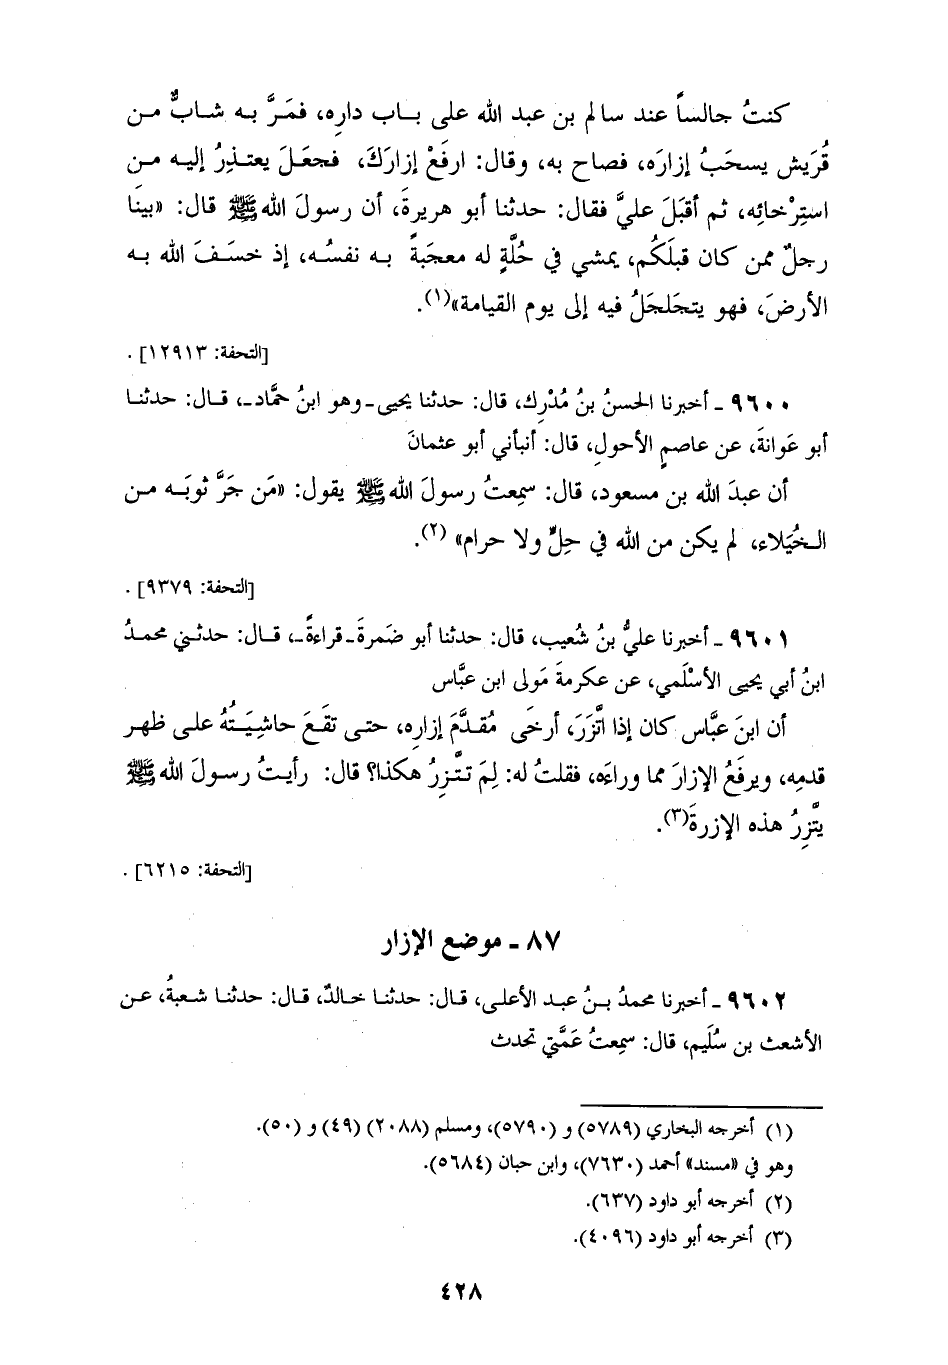 كنتُ جالساً عند سالم بن عبد الله على باب دارِه، فمَرَّ به شابٌّ من
قُرَيش يسحَبُ إزارَه، فصاح به، وقال: ارفَعْ إزارَكَ، فجعَلَ يعتذِرُ إليه من
استِرْخائِه، ثم أقبَلَ عليَّ فقال: حدثنا أبو هريرةَ، أن رسولَ الله ﷺ قال: «بينَا
رجلٌ ممن كان قبلَكُم، يمشي في حُلَّةٍ له معجَبةً به نفسُه، إذ خسَفَ الله به
الأرضَ، فهو يتجَلجَلُ فيه إلى يوم القيامة»(١).
[التحفة: ١٢٩١٣] .
٩٦٠٠ ـ أخبرنا الحسنُ بنُ مُدْرِك، قال: حدثنا يحيى ـ وهو ابنُ حمَّاد ـ، قال: حدثنا
أبو عَوانةَ، عن عاصمٍ الأحولِ، قال: أنبأني أبو عثمانَ
أن عبدَ الله بن مسعود، قال: سمِعتُ رسولَ الله ﷺ يقول: «مَن جَرَّ ثوبَه من
الخُيَلاء، لم يكن من الله في حِلٍّ ولا حرام» (٢).
[التحفة: ٩٣٧٩] .
٩٦٠١ ـ أخبرنا عليُّ بنُ شُعيب، قال: حدثنا أبو ضَمرةَ ـ قراءةً ـ، قال: حدثني محمدُ
ابنُ أبي يحيى الأسْلَمي، عن عكرمةَ مَولى ابن عبَّاس
أن ابنَ عبَّاس كان إذا اتَّزَرَ، أرخَى مُقدَّمَ إزارِه، حتى تقَعَ حاشِيَتُهُ على ظهر
قدمِه، ويرفَعُ الإزارَ مما وراءَه، فقلتُ له: لِمَ تتَّزِرُ هكذا؟ قال: رأيتُ رسولَ الله ﷺ
يتَّزِرُ هذه الإزرةَ(٣).
[التحفة: ٦٢١٥] .
٨٧ ـ موضع الإزار
٩٦٠٢ ـ أخبرنا محمدُ بنُ عبد الأعلى، قال: حدثنا خالدٌ، قال: حدثنا شعبةُ، عن
الأشعث بن سُلَيم، قال: سمِعتُ عَمَّتي تحدث
(١) أخرجه البخاري (٥٧٨٩) و (٥٧٩٠)، ومسلم (٢٠٨٨) (٤٩) و (٥٠).
وهو في «مسند» أحمد (٧٦٣٠)، وابن حبان (٥٦٨٤).
(٢) أخرجه أبو داود (٦٣٧).
(٣) أخرجه أبو داود (٤٠٩٦).
٤٢٨